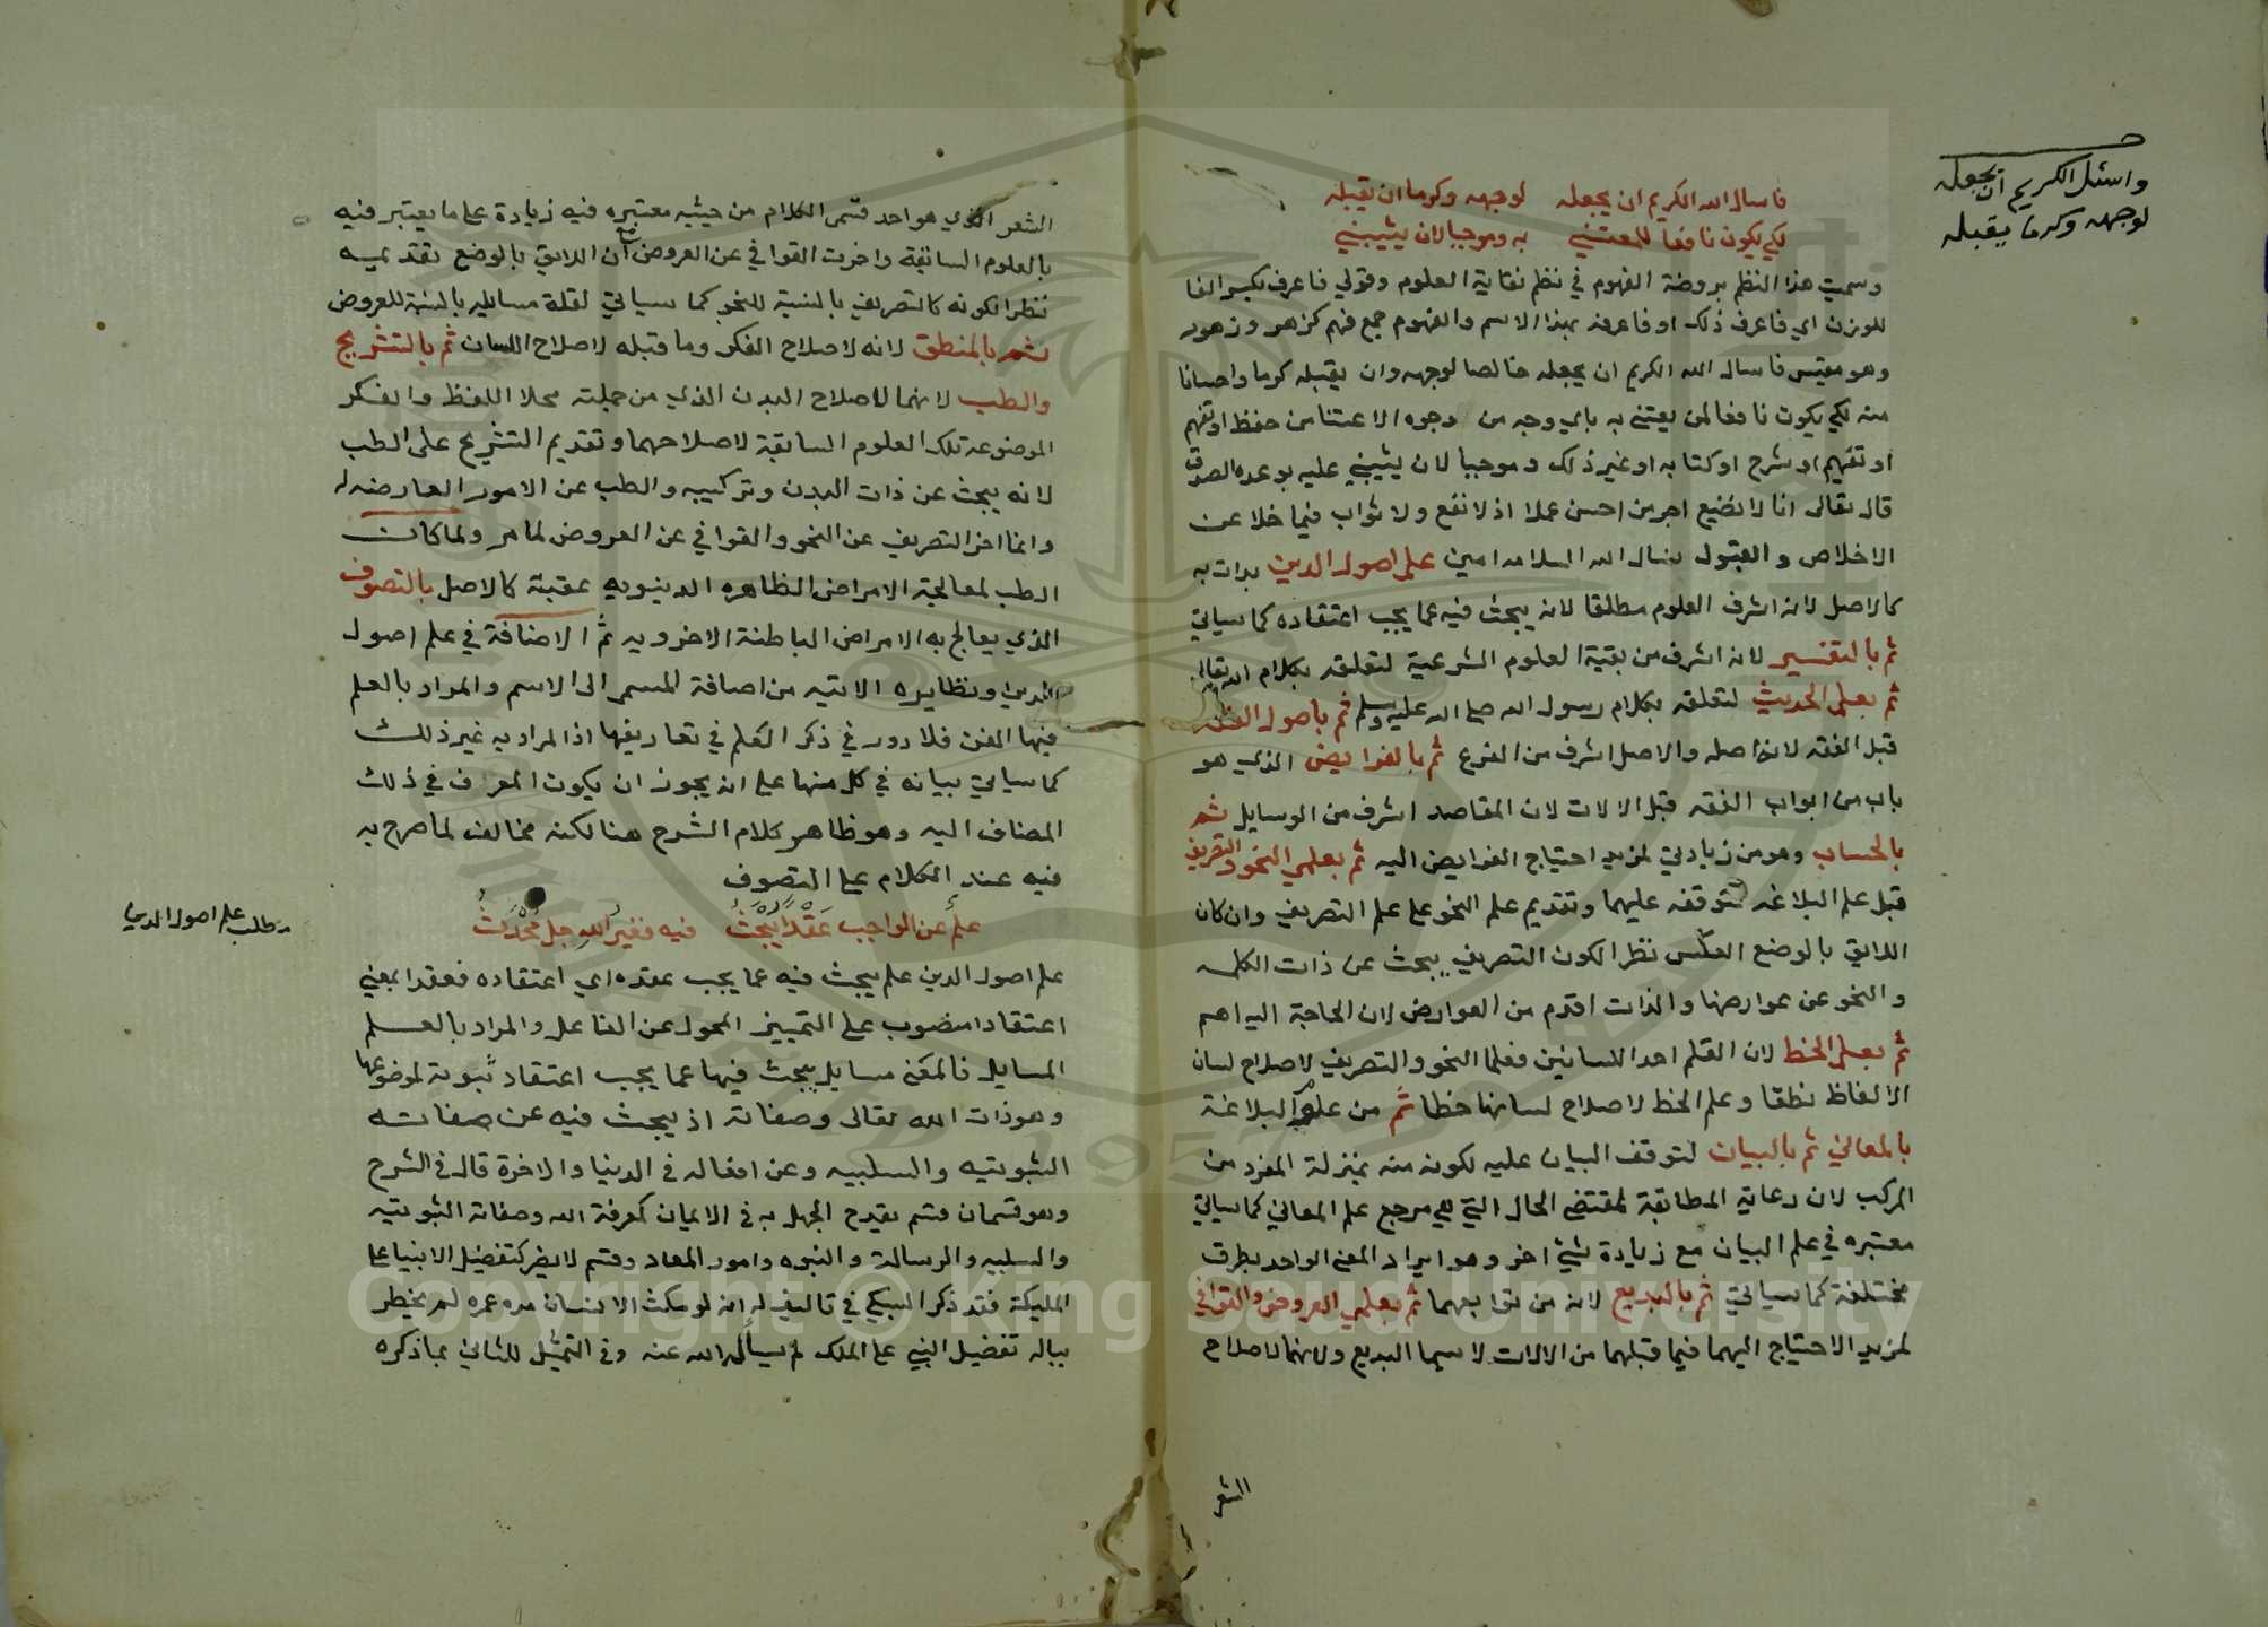 فاسال الله الكريم ان يجعله لوجهه وكرما ان يقبله
لكي يكون نافعا للمعتني به وموجبا لان يثيبني
وسميت هذا النظم بروضة الفهوم في نظم نقاية العلوم وقولي فاعرف بكسر الفا
للوزن اي فاعرف ذلك او فاعرفه بهذا الاسم والفهوم جمع فهم كزهر وزهور
وهو مقيس فاسال الله الكريم ان يجعله خالصا لوجهه وان يقبله كرما واحسانا
منه لكي يكون نافعا لمن يعتني به باي وجه من وجوه الاعتنا من حفظ او تفهم
او تفهيم او شرح او كتابه او غير ذلك وموجبا لان يثيبني عليه بوعده الصدق
قال تعالى انا لا نضيع اجر من احسن عملا اذ لا نفع ولا ثواب فيما خلا عن
الاخلاص والقبول نسال الله السلامه امين علم اصول الدين بدات به
كالاصل لانه اشرف العلوم مطلقا لانه يبحث فيه عما يجب اعتقاده كما سياتي
ثم بالتفسير لانه اشرف من بقية العلوم الشرعية لتعلقه بكلام الله تعالى
ثم بعلم الحديث لتعلقه بكلام رسول الله صلى الله عليه وسلم ثم باصول الفقه
قبل الفقه لانه اصله والاصل اشرف من الفرع ثم بالفرايض الذي هو
باب من ابواب الفقه قبل الالات لان المقاصد اشرف من الوسايل ثم
بالحساب وهو من زيادتي لمزيد احتياج الفرايض اليه ثم بعلمي النحو والتصريف
قبل علم البلاغه لتوقفه عليهما وتقديم علم النحو على علم التصريف وان كان
اللايق بالوضع العكس نظرا لكون التصريف يبحث عن ذات الكلمه
والنحو عن عوارضها والذات اقدم من العوارض لان الحاجة اليه اهم
ثم بعلم الخط لان القلم احد اللسانين فعلما النحو والتصريف لاصلاح لسان
الالفاظ نطقا وعلم الخط لاصلاح لسانها خطا ثم من علوم البلاغة
بالمعاني ثم بالبيان لتوقف البيان عليه لكونه منه بمنزلة المفرد من
المركب لان رعاية المطابقة لمقتضى الحال التي هي مرجع علم المعاني كما سياتي
معتبره في علم البيان مع زيادة شيئ اخر وهو ايراد المعنى الواحد بطرق
مختلفة كما سياتي ثم بالبديع لانه من توابعهما ثم بعلمي العروض والقوافي
لمزيد الاحتياج اليهما فيما قبلهما من الالات لا سيما البديع ولانهما لاصلاح
الشعر
واسئل الكريم ان يجعله
لوجهه وكرما يقبله
الشعر الذي هو احد قسمى الكلام من حيثيه معتبره فيه زيادة على ما يعتبر فيه
بالعلوم السابقة واخرت القوافي عن العروض مع ان اللايق بالوضع تقديمه
نظرا لكونه كالتصريف بالنسبة للنحو كما سياتي لقلة مسايله بالنسبة للعروض
ثم بالمنطق لانه لاصلاح الفكر وما قبله لاصلاح اللسان ثم بالتشريح
والطب لانهما لاصلاح البدن الذي من جملته محلا اللفظ والفكر
الموضوعة تلك العلوم السابقة لاصلاحهما وتقديم التشريح على الطب
لانه يبحث عن ذات البدن وتركيبه والطب عن الامور العارضه له
وانما اخر التصريف عن النحو والقوافي عن العروض لما مر ولما كان
الطب لمعالجة الامراض الظاهره الدينويه عقبته كالاصل بالتصوف
الذي يعالج به الامراض الباطنة الاخرويه ثم الاضافة في علم اصول
الدين ونظايره الاتيه من اضافة المسمى الى الاسم والمراد بالعلم
فيها الفن فلا دور في ذكر العلم في تعاريفها اذ المراد به غير ذلك
كما سياتي بيانه في كل منها على انه يجوز ان يكون المعرف في ذلك
المضاف اليه وهو ظاهر كلام الشرح هنا لكنه مخالف لما صرح به
فيه عند الكلام على التصوف
علم عن الواجب عقدا يبحث فيه فغير الله جل محدث
علم اصول الدين علم يبحث فيه عما يجب عقده اي اعتقاده فعقدا بمعني
اعتقادا منصوب على التمييز المحول عن الفاعل والمراد بالعلم
المسايل فالمعنى مسايل يبحث فيها عما يجب اعتقاد ثبوته لموضوعها
وهو ذات الله تعالى وصفاته اذ يبحث فيه عن صفاته
الثبوتيه والسلبيه وعن افعاله في الدينا والاخرة قال في الشرح
وهو قسمان قسم يقدح الجهل به في الايمان كمعرفة الله وصفاته الثبوتيه
والسلبيه والرسالة والنبوه وامور المعاد وقسم لا يضر كتفضيل الانبيا على
المليكة فقد ذكر السبكي في تاليف له انه لو مكث الانسان مده عمره لم يخطر
بباله تفضيل النبي على الملك لم يسأله الله عنه وفي التمثيل للثاني بما ذكره
مطلب علم اصول الدين
Copyright © King Saud University
1957